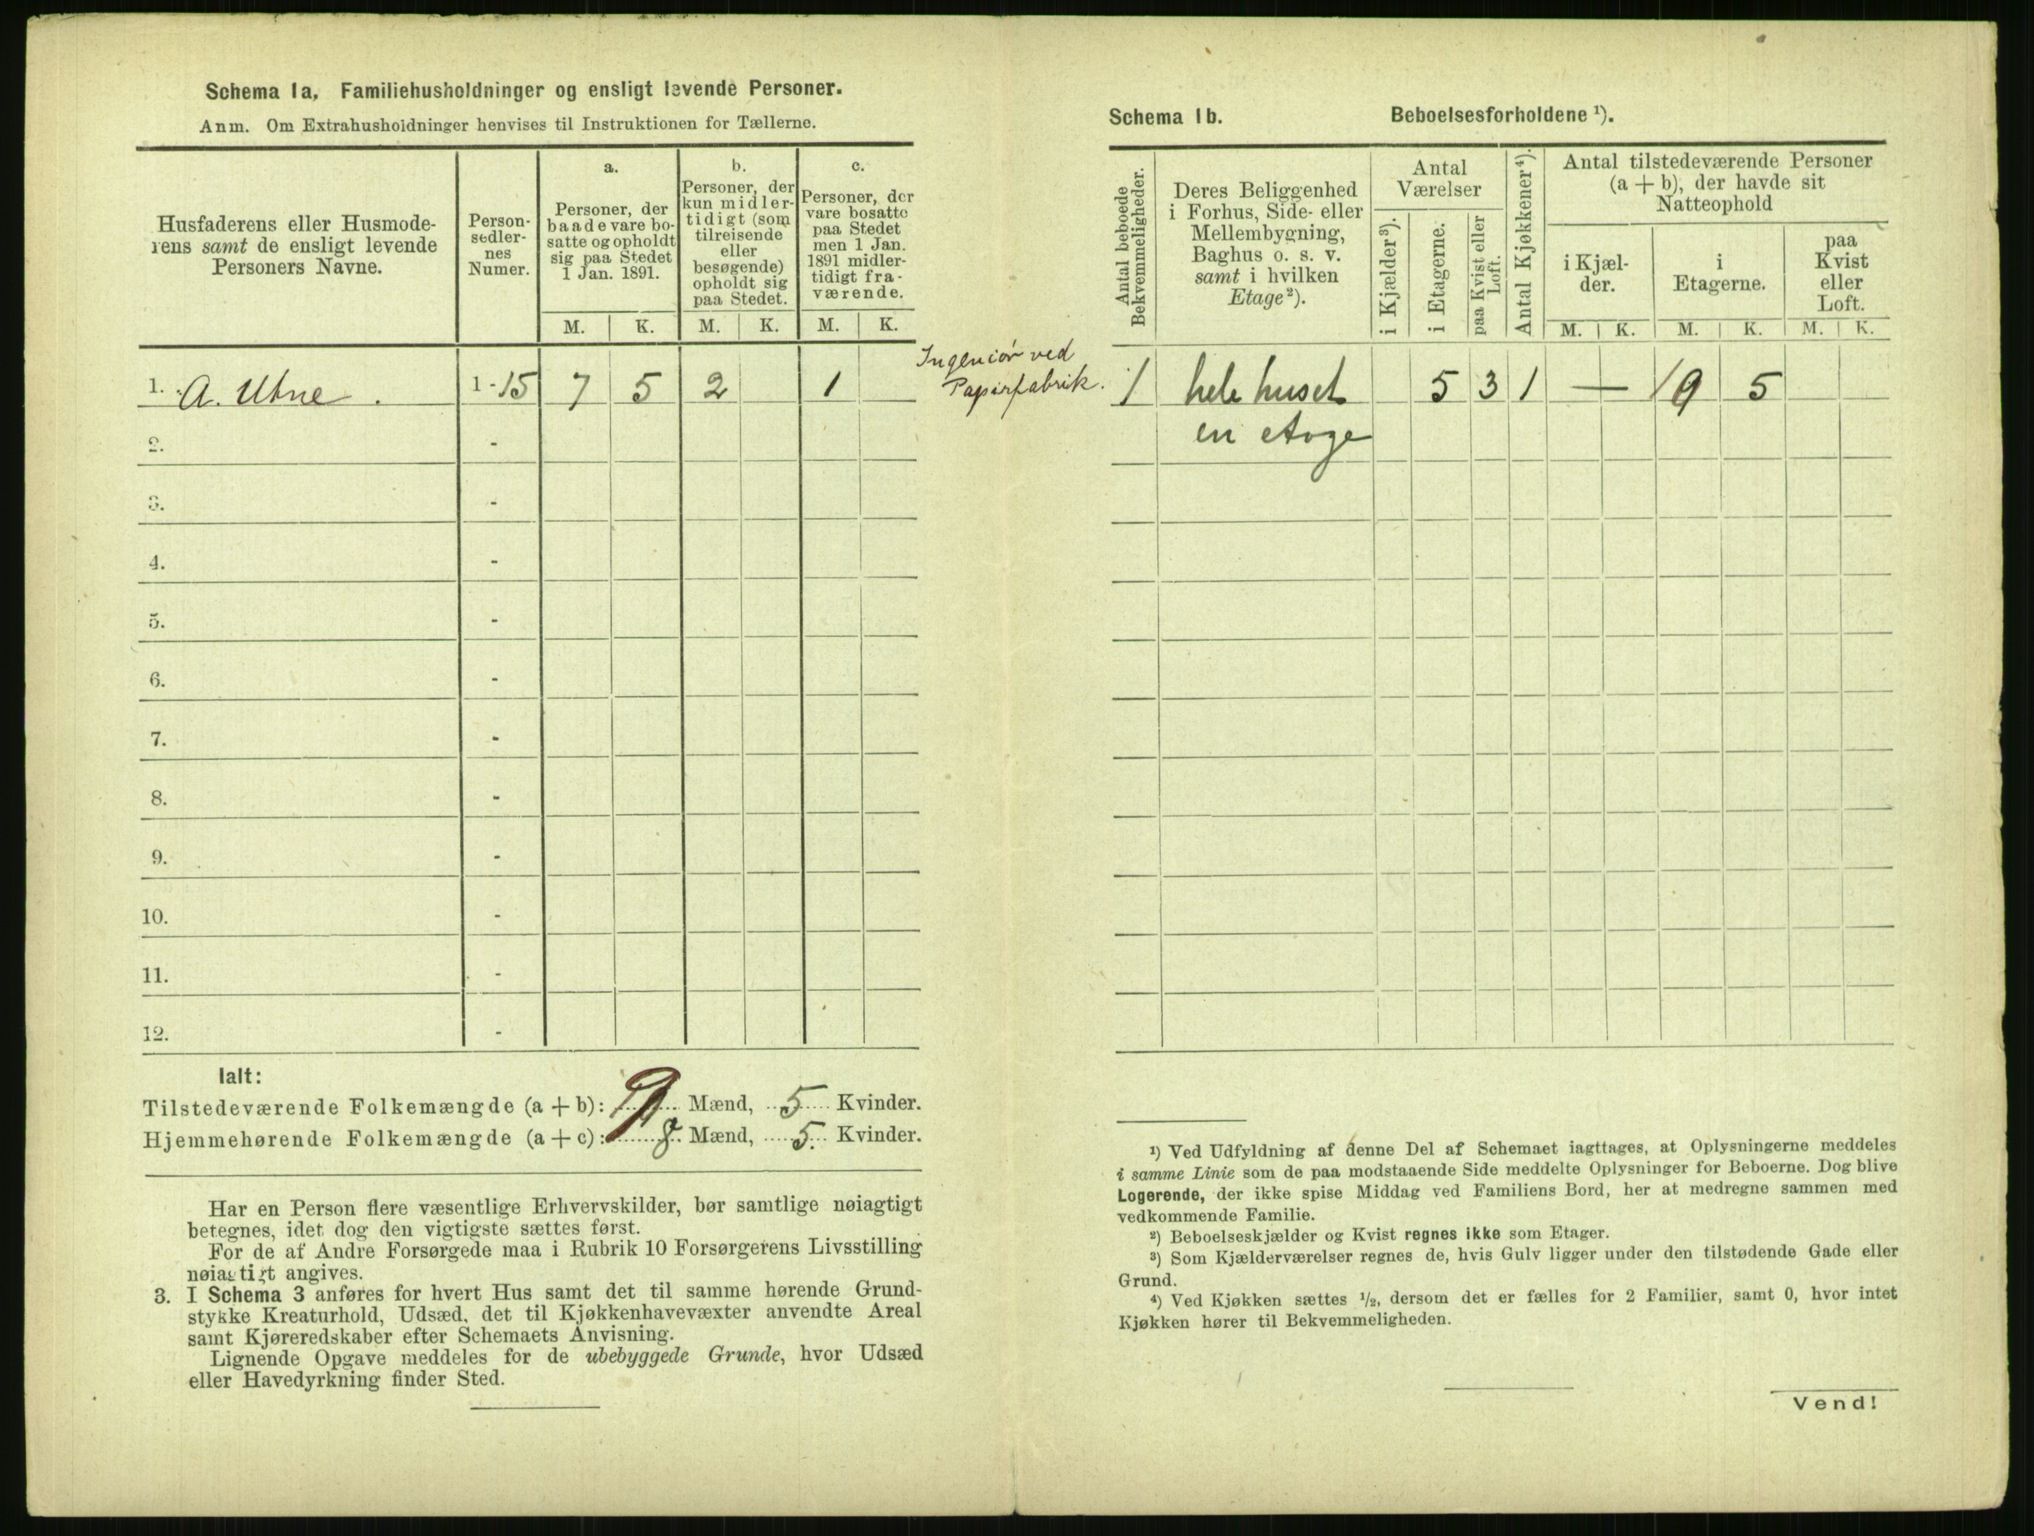 Schema 1a, Familiehusholdninger og ensligt levende Personer.
Anm. Om Extrahusholdninger henvises til Instruktionen for Tællerne.
Husfaderens eller Husmode-
rens samt de ensligt levende
Personers Navne.
Person-
sedler-
nes
Numer.
a.
Personer, der
baade vare bo-
satte og opholdt
sig paa Stedet
1 Jan. 1891.
M. K.
b.
Personer, der
kun midler-
tidigt (som
tilreisende
eller
besøgende)
opholdt sig
paa Stedet.
M. K.
c.
Personer, der
vare bosatte
paa Stedet
men 1 Jan.
1891 midler-
tidigt fra-
værende.
M. K.
1. A. Utne . 1 - 15 7 5 2 1
Ingeniør ved
Papirfabrik.
2. -
3. -
4. -
5. -
6. -
7. -
8. -
9. -
10. -
11. -
12. -
Ialt:
Tilstedeværende Folkemængde (a + b): 9 Mænd, 5 Kvinder.
Hjemmehørende Folkemængde (a + c): 8 Mænd, 5. Kvinder.
Har en Person flere væsentlige Erhvervskilder, bør samtlige nøiagtigt
betegnes, idet dog den vigtigste sættes først.
For de af Andre Forsørgede maa i Rubrik 10 Forsørgerens Livsstilling
nøiagtigt angives.
3. I Schema 3 anføres for hvert Hus samt det til samme hørende Grund-
stykke Kreaturhold, Udsæd, det til Kjøkkenhavevæxter anvendte Areal
samt Kjøreredskaber efter Schemaets Anvisning.
Lignende Opgave meddeles for de ubebyggede Grunde, hvor Udsæd
eller Havedyrkning finder Sted.
Schema 1b. Beboelsesforholdene ¹).
Antal beboede
Bekvemmeligheder.
Deres Beliggenhed
i Forhus, Side- eller
Mellembygning,
Baghus o. s. v.
samt i hvilken
Etage²).
Antal
Værelser
i Kjælder³).
i Etagerne.
paa Kvist eller
Loft.
Antal Kjøkkener⁴).
Antal tilstedeværende Personer
(a + b), der havde sit
Natteophold
i Kjæl-
der.
M. K.
i
Etagerne.
M. K.
paa
Kvist
eller
Loft.
M. K.
1 hele huset 5 3 1 — 9 5
en etage
¹) Ved Udfyldning af denne Del af Schemaet iagttages, at Oplysningerne meddeles
i samme Linie som de paa modstaaende Side meddelte Oplysninger for Beboerne. Dog blive
Logerende, der ikke spise Middag ved Familiens Bord, her at medregne sammen med
vedkommende Familie.
²) Beboelseskjælder og Kvist regnes ikke som Etager.
³) Som Kjælderværelser regnes de, hvis Gulv ligger under den tilstødende Gade eller
Grund.
⁴) Ved Kjøkken sættes ½, dersom det er fælles for 2 Familier, samt 0, hvor intet
Kjøkken hører til Bekvemmeligheden.
Vend!